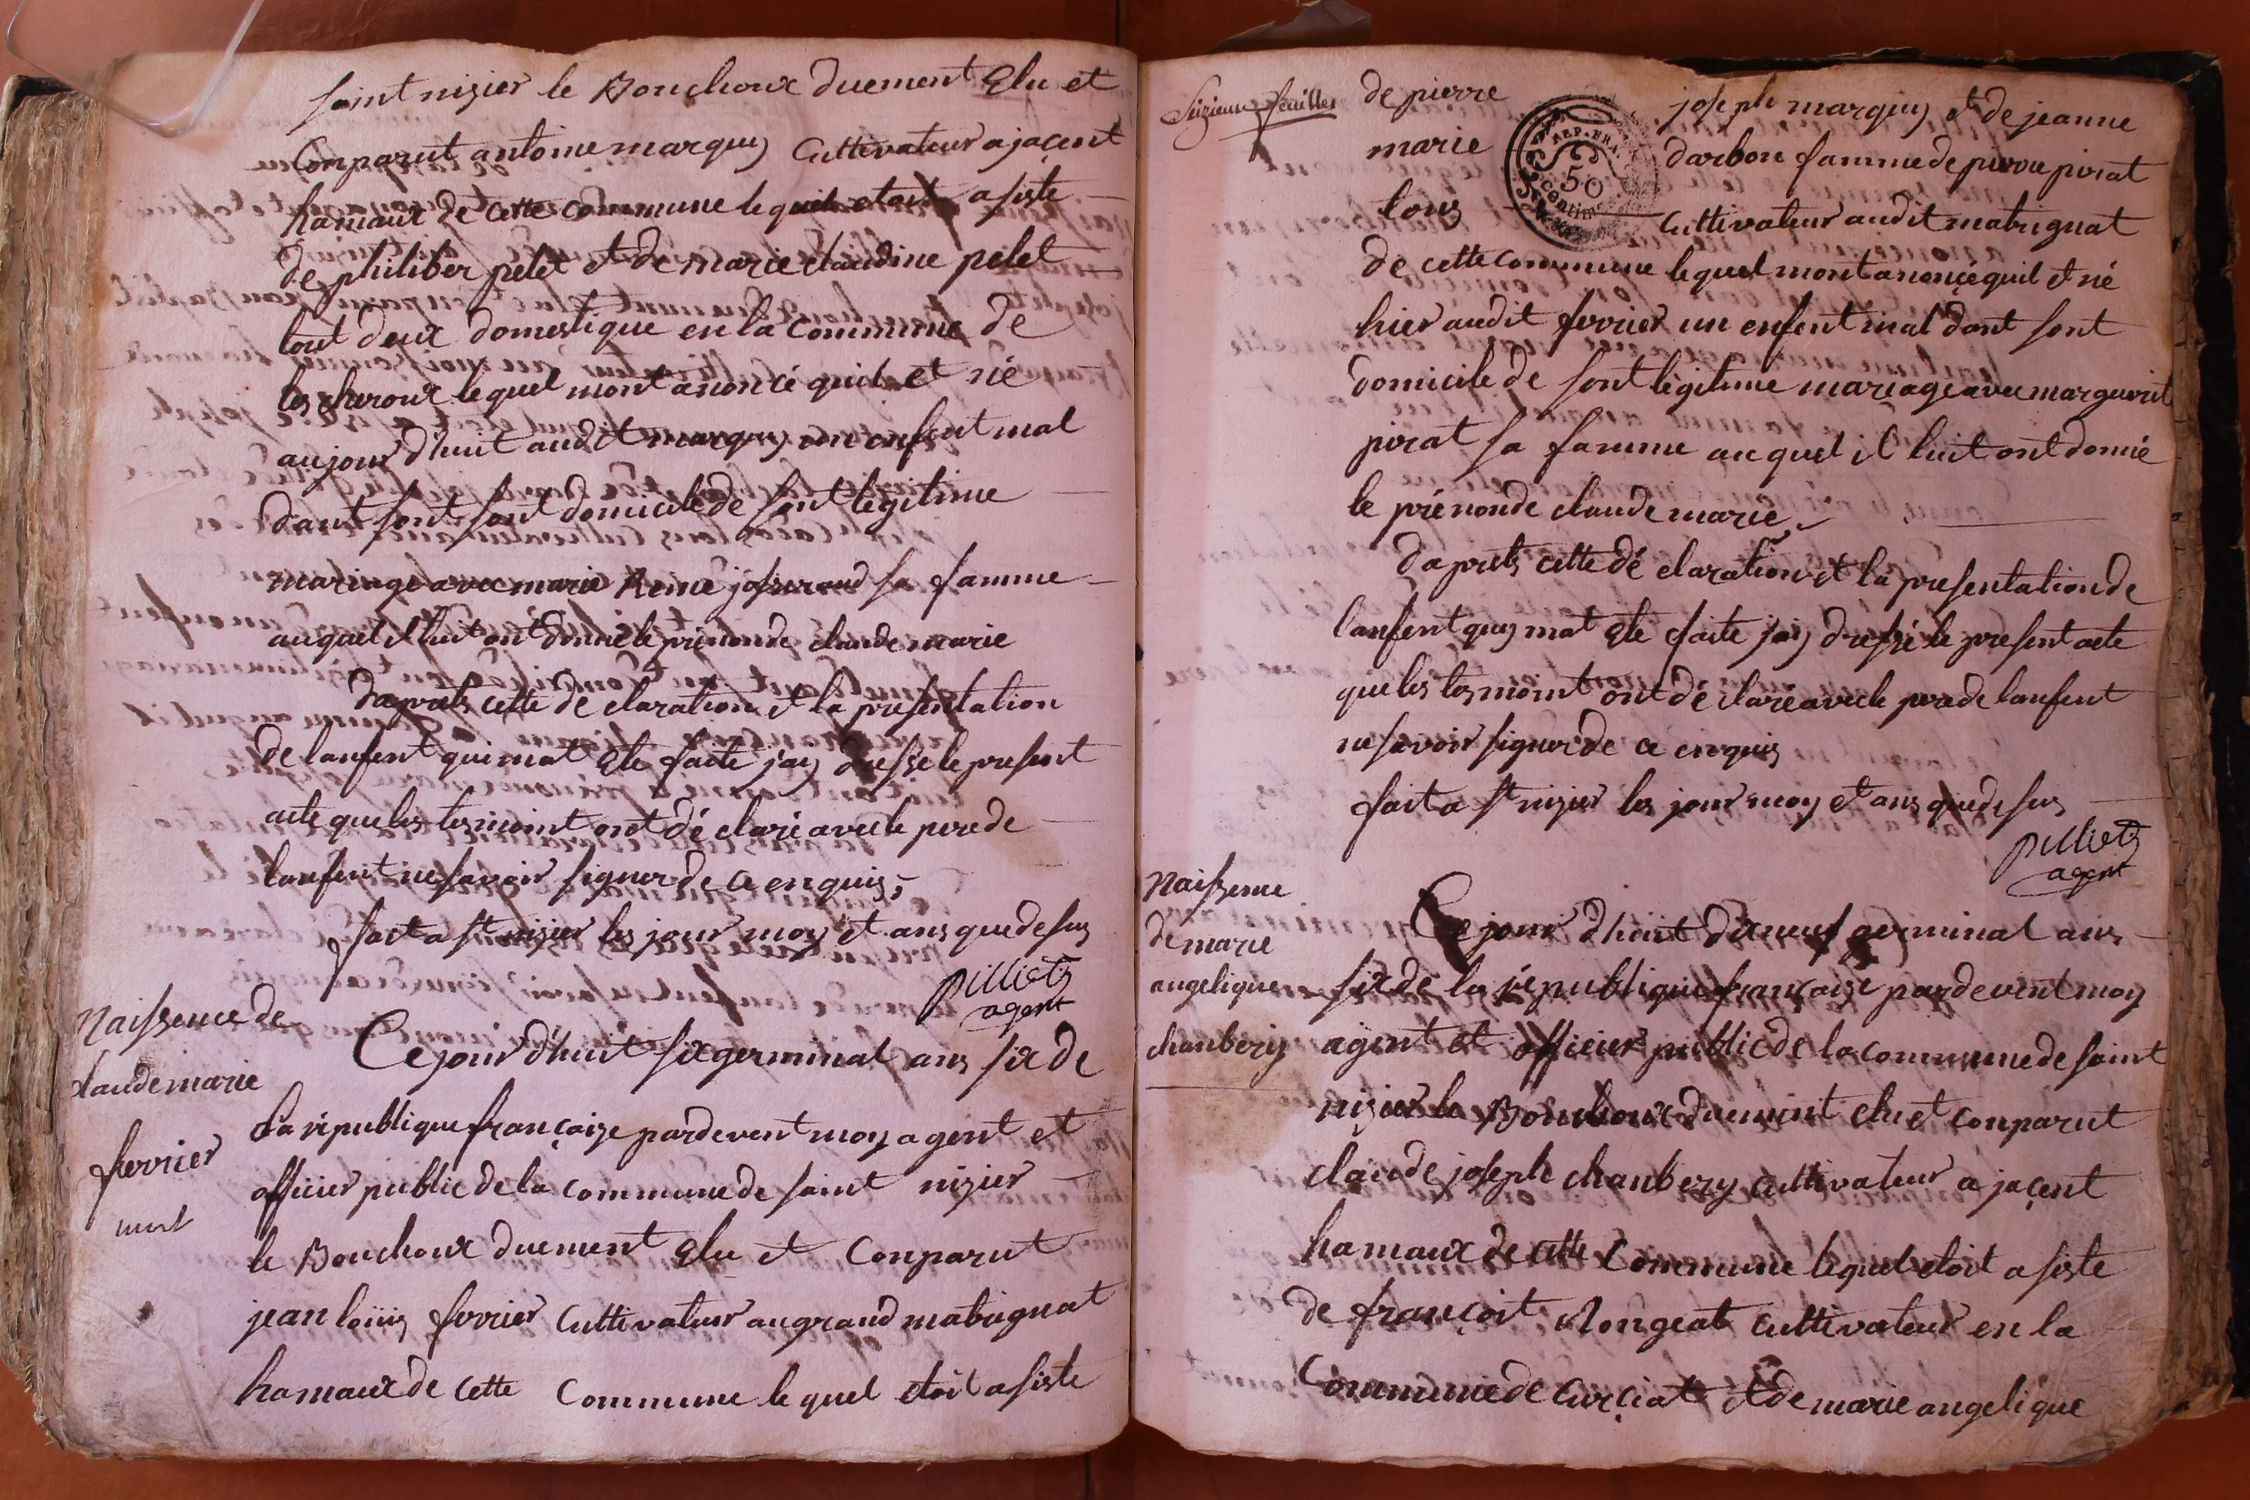 saint nizier le Bouchoux duement Elu et
Comparut antoine marquy Cultivateur a jaçent
hamaux de cette commune lequel etoit asiste
de philiber pelet et de marie claudine pelet
tout deux domestique en la commune de
les cheroux lequel mont anoncé quil et né
aujour d'huit audit marquy un enfent mal
dant sont sont domicile de sont legitime
mariage avec marie Reine josserand sa famme
auquel il luit ont donné le prenonde claude marie
daprets cette dé claration et la presentation
de lanfent qui mat Ete faite j'ay dressé le present
acte que les tesmoint ont dé claré avec le perede
lanfent ne savoir signer de ce enquis,
fait a st nizier les jour moy et ans que desus
pilliet
agent
Naissence de
claude marie
fevrier
mort
Ce jour d'huit six germinal ans six de
la république françaize pardevent moy agent et
officier public de la commune de saint nizier
le Bouchoux duement Elu et Conparut
jean loüis fevrier Cultivateur au grand mabugnat
hamaux de cette Commune lequel etoit asiste
Seizieme feuillet
de pierre
marie
lous
REP. FRA.
50
centimes
joseph marquy et de jeanne
darbon famme de pierre pirat
Cultivateur audit mabugnat
de cette commune lequel mont anoncé quil et né
hier audit fevrier un enfent mal dont sont
domicile de sont légitime mariage avec marguerit
pirat sa famme auquel il luit ont donné
le prénonde claude marie
daprets cette dé claration et la presentation de
lanfent quy mat Ete faite jay dressé le present acte
que les tesmoint ont dé claré avec le pere de lanfent
ne savoir signer de ce enquis
fait a st nizier les jour moy et ans que desus
pilliet
agent
Naissence
de marie
angelique
chanbery
Ce jour d'huit dixneuf germinal ans
six de la république françaize pardevent moy
agent et officier public de la commune de saint
nizier le Bouchoux duement elu et conparut
claude joseph chanbery cultivateur a jaçent
hamaux de cette Commune lequel etoit asiste
de françoit Mongeat cultivateur en la
Commune de Curçiat et de marie angelique